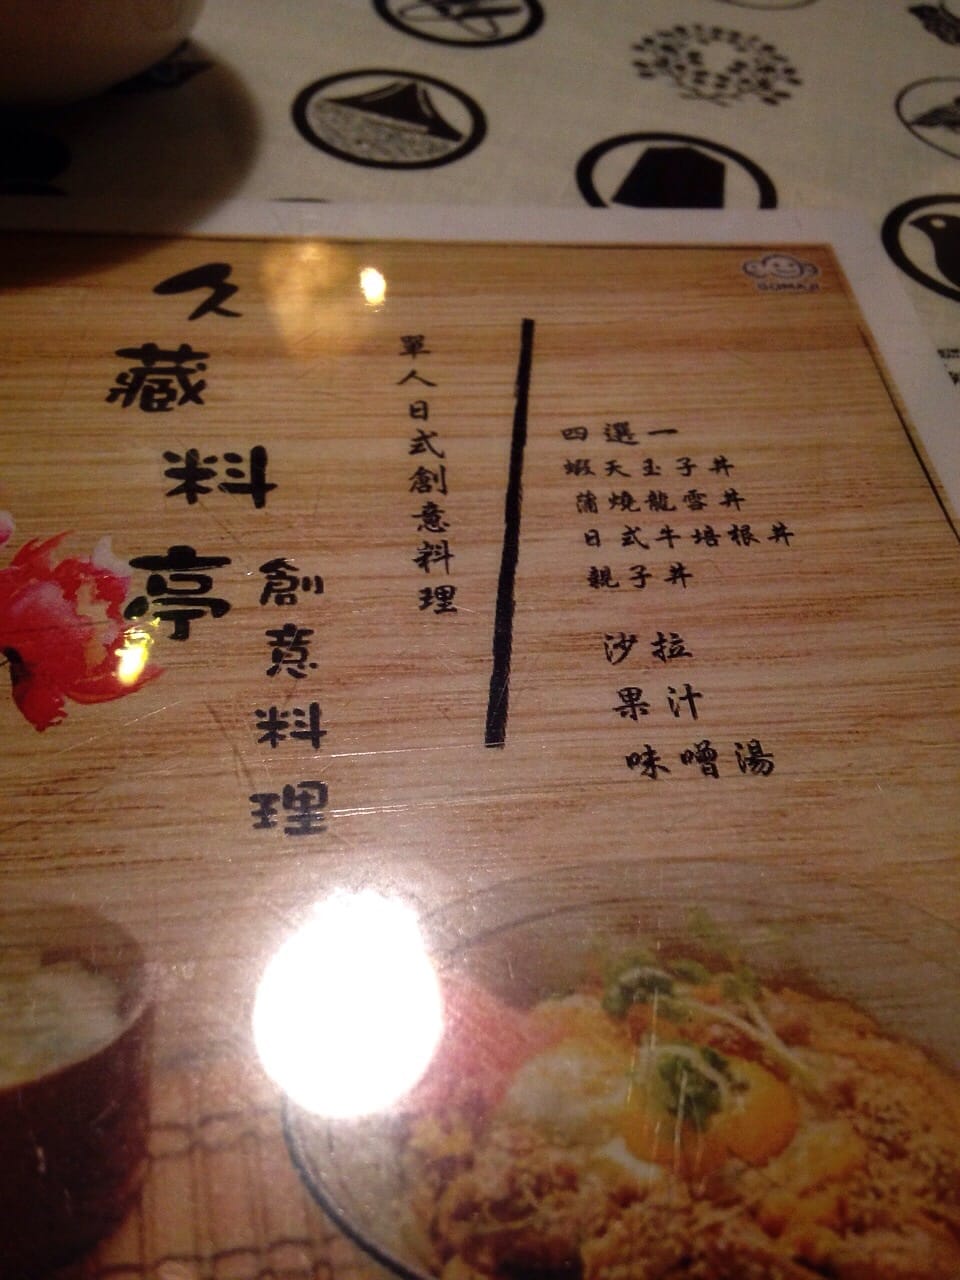 久藏料亭
創意料理
單人日式創意料理
GOMAJI
四選一
蝦天玉子丼
蒲燒龍雪丼
日式牛培根丼
親子丼
沙拉
果汁
味噌湯